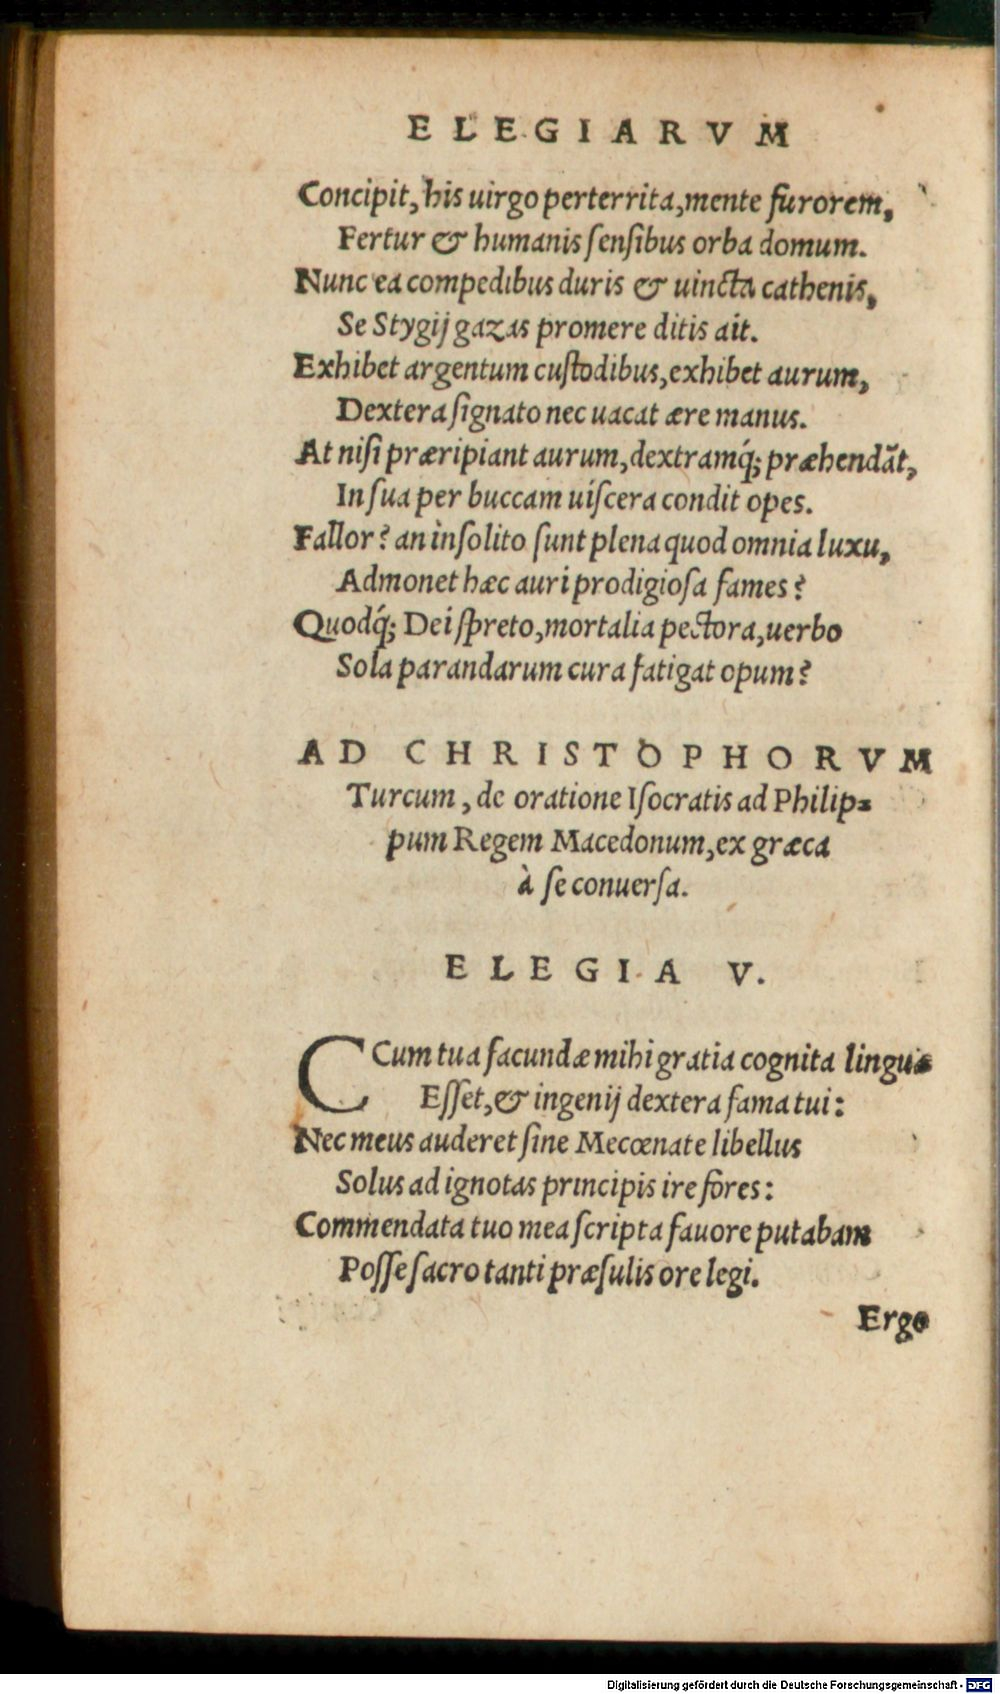 ELEGIARVM
Concipit, his uirgo perterrita, mente furorem,
Fertur & humanis ſenſibus orba domum.
Nunc ea compedibus duris & uincta cathenis,
Se Stygij gazas promere ditis ait.
Exhibet argentum cuſtodibus, exhibet aurum,
Dextera ſignato nec uacat ære manus.
At niſi præripiant aurum, dextramq́; præhendãt,
In ſua per buccam uiſcera condit opes.
Fallor? an inſolito ſunt plena quod omnia luxu,
Admonet hæc auri prodigioſa fames?
Quodq́; Dei ſpreto, mortalia pectora, uerbo
Sola parandarum cura fatigat opum?
AD CHRISTOPHORVM
Turcum, de oratione Iſocratis ad Philip=
pum Regem Macedonum, ex græca
à ſe conuerſa.
ELEGIA V.
CCum tua facundæ mihi gratia cognita linguæ
Eſſet, & ingenij dextera fama tui:
Nec meus auderet ſine Mecœnate libellus
Solus ad ignotas principis ire fores:
Commendata tuo mea ſcripta fauore putabam
Poſſe ſacro tanti præſulis ore legi.
Ergo
Digitalisierung gefördert durch die Deutsche Forschungsgemeinschaft - DFG